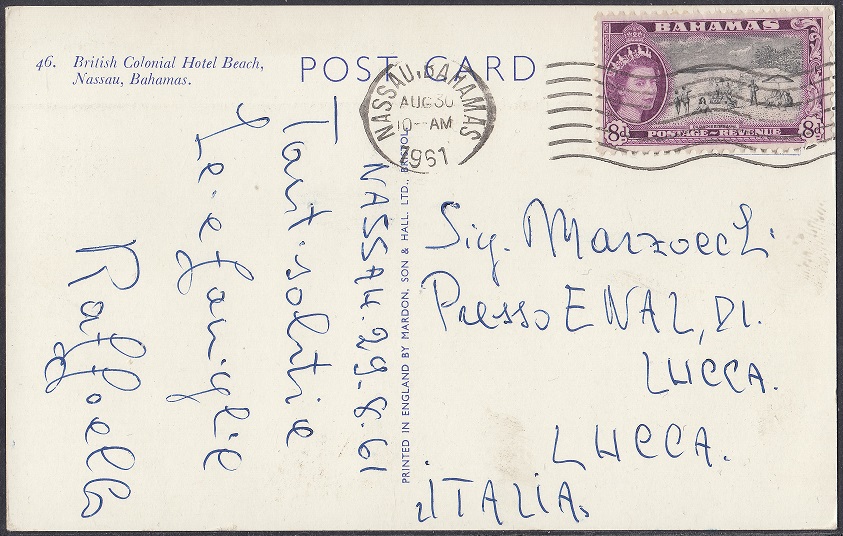 46. British Colonial Hotel Beach,
Nassau, Bahamas.
POST CARD
NASSAU, BAHAMAS
AUG 30
10-AM
1961
BAHAMAS
8d
POSTAGE-REVENUE
8d
PRINTED IN ENGLAND BY MARDON, SON & HALL, LTD., BRISTOL
NASSAU. 29.8.61
Tant. saluti a
Le e famiglie
Raffaella
Sig. Marzocchi
Presso ENAL, DI.
LUCCA.
LUCCA.
ITALIA.